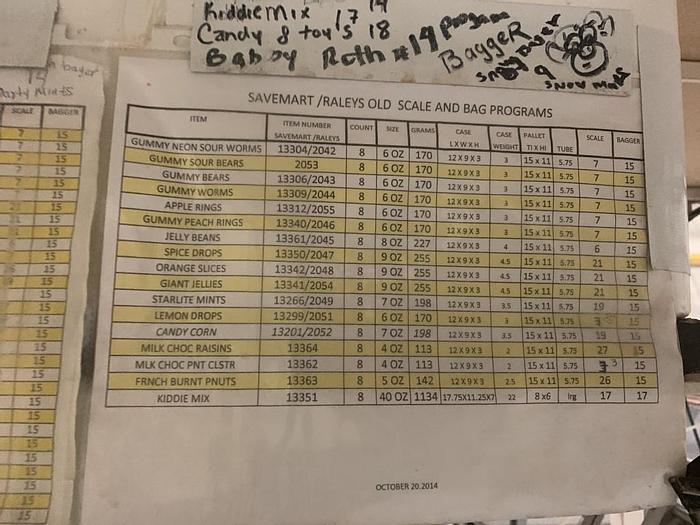 Kiddie Mix 17 19
Candy & toy's 18
Roth #19 program
BaggeR
9
snow mints
Party Mints
SAVEMART /RALEYS OLD SCALE AND BAG PROGRAMS
ITEM ITEM NUMBER SAVEMART /RALEYS COUNT SIZE GRAMS CASE L X W X H CASE WEIGHT PALLET TI X HI TUBE SCALE BAGGER
GUMMY NEON SOUR WORMS 13304/2042 8 6 OZ 170 12 X 9 X 3 3 15 x 11 5.75 7 15
GUMMY SOUR BEARS 2053 8 6 OZ 170 12 X 9 X 3 3 15 x 11 5.75 7 15
GUMMY BEARS 13306/2043 8 6 OZ 170 12 X 9 X 3 3 15 x 11 5.75 7 15
GUMMY WORMS 13309/2044 8 6 OZ 170 12 X 9 X 3 3 15 x 11 5.75 7 15
APPLE RINGS 13312/2055 8 6 OZ 170 12 X 9 X 3 3 15 x 11 5.75 7 15
GUMMY PEACH RINGS 13340/2046 8 6 OZ 170 12 X 9 X 3 3 15 x 11 5.75 7 15
JELLY BEANS 13361/2045 8 8 OZ 227 12 X 9 X 3 4 15 x 11 5.75 6 15
SPICE DROPS 13350/2047 8 9 OZ 255 12 X 9 X 3 4.5 15 x 11 5.75 21 15
ORANGE SLICES 13342/2048 8 9 OZ 255 12 X 9 X 3 4.5 15 x 11 5.75 21 15
GIANT JELLIES 13341/2054 8 9 OZ 255 12 X 9 X 3 4.5 15 x 11 5.75 21 15
STARLITE MINTS 13266/2049 8 7 OZ 198 12 X 9 X 3 3.5 15 x 11 5.75 19 15
LEMON DROPS 13299/2051 8 6 OZ 170 12 X 9 X 3 3 15 x 11 5.75 15
CANDY CORN 13201/2052 8 7 OZ 198 12 X 9 X 3 3.5 15 x 11 5.75 19 15
MILK CHOC RAISINS 13364 8 4 OZ 113 12 X 9 X 3 2 15 x 11 5.75 27 15
MLK CHOC PNT CLSTR 13362 8 4 OZ 113 12 X 9 X 3 2 15 x 11 5.75 15
FRNCH BURNT PNUTS 13363 8 5 OZ 142 12 X 9 X 3 2.5 15 x 11 5.75 26 15
KIDDIE MIX 13351 8 40 OZ 1134 17.75X11.25X7 22 8 x6 lrg 17 17
OCTOBER 20.2014
SCALE BAGGER
7 15
7 15
7 15
7 15
7 15
7 15
15
15
15
15
15
15
15
15
15
15
15
15
15
15
15
15
15
15
15
15
15
15
15
15
15